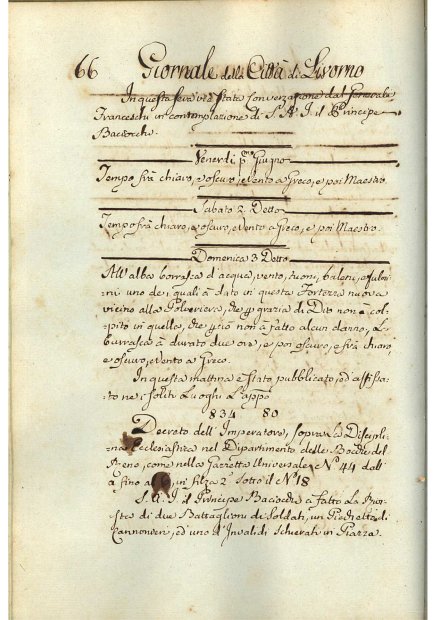 66 Giornale della Città di Livorno
In questa sera vi è stata Converzazione dal Generale
Franceschi in contemplazione di S. A. I. il Principe
Baciocchi.
Venerdi p.mo Giugno
Tempo frà chiaro, e oscuro, e Vento a Greco, e poi Maestro.
Sabato 2. Detto
Tempo frà chiaro, e oscuro, e Vento a Greco, e poi Maestro.
Domenica 3 Detto
All'alba borrasca d'acqua, vento, tuoni, baleni, e fulmi-
ni uno de quali à dato in questa Fortezza nuova
vicino alla Polveriera, che grazia di Dio non à col-
pito in quella, che non à fatto alcun danno, La
burrasca à durato due ore, e poi oscuro, e frà chiaro,
e oscuro, e Vento a Greco.
In questa mattina è stato pubblicato, ed affissa-
to ne i soliti Luoghi L'appo
834 80
Decreto dell'Imperatore, sopra la Discipli-
na Ecclesiastica nel Dipartimento delle Bocche del
Reno, come nella Gazzetta Universale N.° 44 dal
à fino a in filza 2ª sotto il N.° 18
S. A. I. il Principe Baciocchi à fatto La Rivi-
sta di due Battaglioni di Soldati, un Picchetto di
Cannonieri, ed uno d'Invalidi Schierati in Piazza.